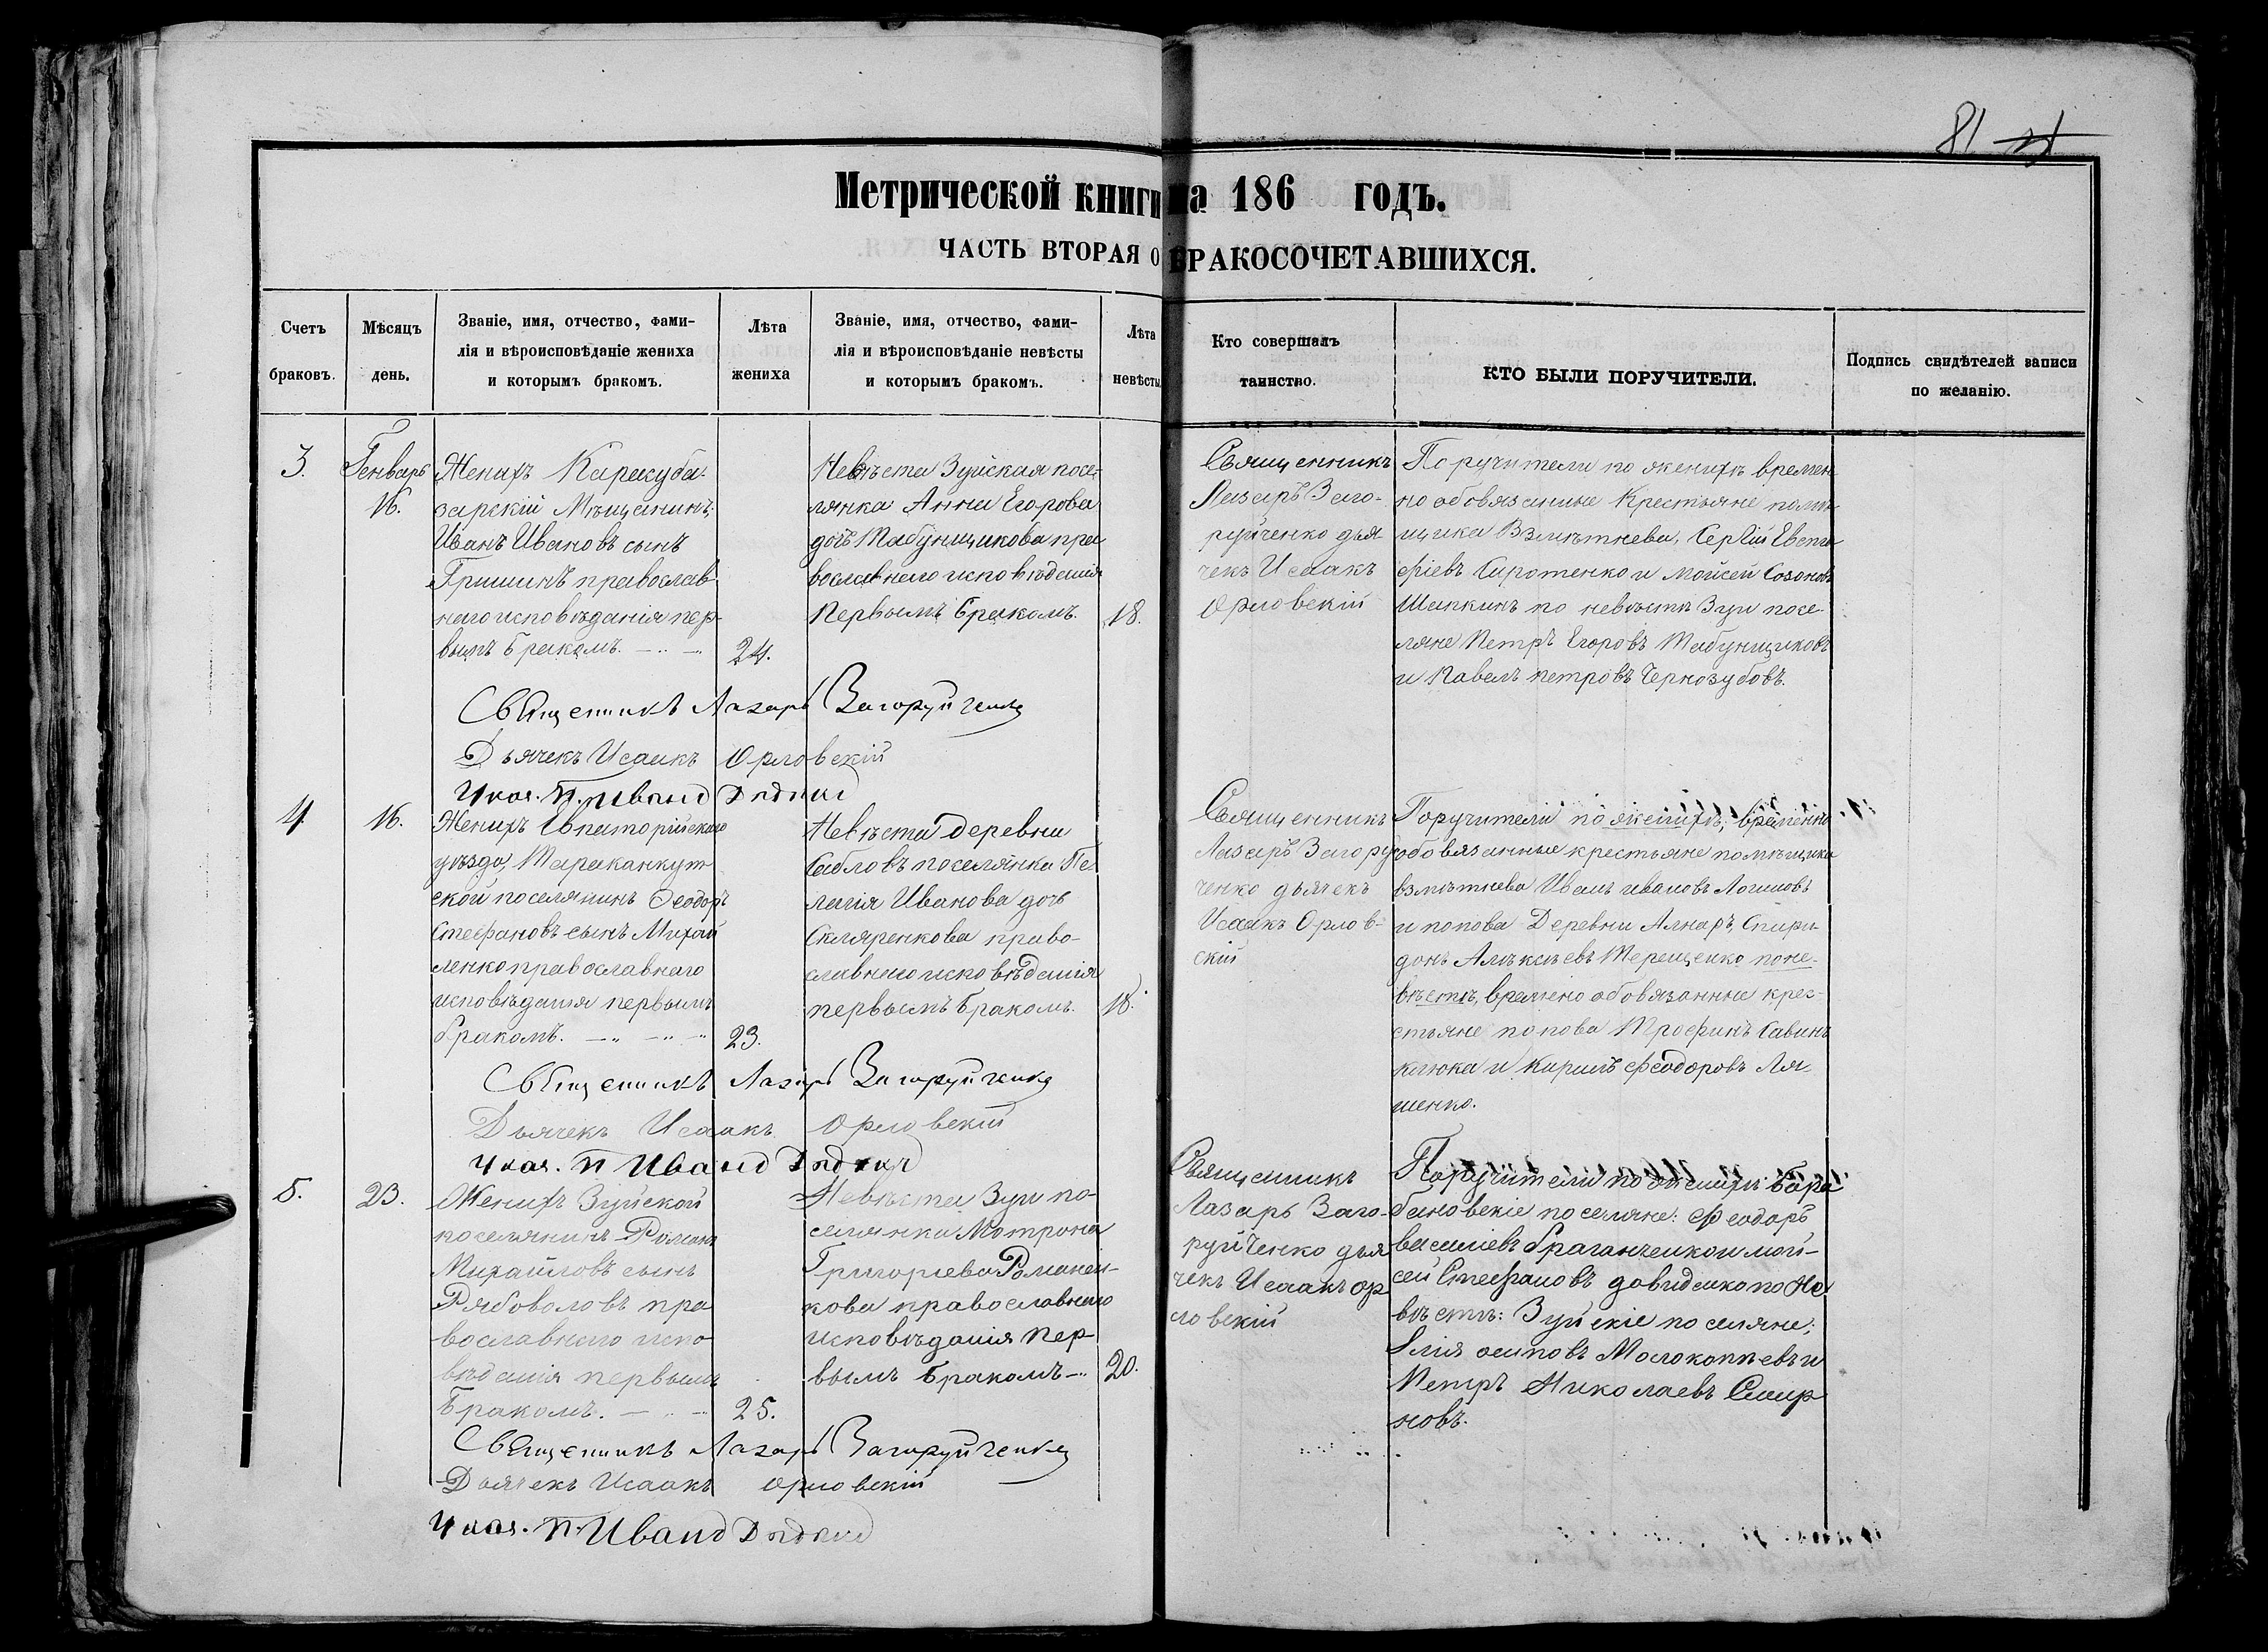 81
Метрической книги на 186 годъ.
ЧАСТЬ ВТОРАЯ О БРАКОСОЧЕТАВШИХСЯ.
Счетъ браковъ.
Мѣсяцъ день.
Званіе, имя, отчество, фами-
лія и вѣроисповѣданіе жениха
и которымъ бракомъ.
Лѣта жениха
Званіе, имя, отчество, фами-
лія и вѣроисповѣданіе невѣсты
и которымъ бракомъ.
Лѣта невѣсты
Кто совершалъ
таинство.
КТО БЫЛИ ПОРУЧИТЕЛИ.
Подпись свидѣтелей записи
по желанію.
3.
Генварь
16.
Женихъ Карасуба-
зарскій Мѣщанинъ,
Иванъ Ивановъ сынъ
Гришинъ православ
наго исповѣданія пер-
вымъ бракомъ.
24.
Невѣста Зуйская посе-
лянка Анна Егорова
дочь Табунщикова пра
вославнаго исповѣданія
Первымъ бракомъ.
18.
Священникъ
Лазарь Заго-
руйченко дья
чекъ Исаакъ
Орловскій
Поручители по женихѣ времен
но обовязанные Крестьяне помѣ
щика Взмѣтнева, Сергій Евста
фіевъ Сиротенко и Мойсей Созоновъ
Шапкинъ по невѣстѣ Зуи посе-
ляне Петръ Егоровъ Табунщиковъ
и Павелъ петровъ Чернозубовъ.
Священникъ Лазарь Загоруйченко
Дьячекъ Исаакъ Орловскій
4
16.
Женихъ Евпаторійскаго
уѣзда, Тараканкут-
ской поселянинъ Феодоръ
Стефановъ сынъ Михай
ленко православнаго
исповѣданія первымъ
бракомъ.
23.
Невѣста Деревни
Сабловъ поселянка Пе-
лагія Иванова дочь
Скляренкова право-
славнаго исповѣданія
первымъ бракомъ.
18.
Священникъ
Лазарь Загоруй
ченко дьячекъ
Исаакъ Орлов-
скій
Поручители по женихѣ, временно
обовязанные крестьяне помѣщика
взмѣтнева Иванъ ивановъ Логиновъ
и попова Деревни Алнаръ, Спири-
донъ Алѣксѣевъ Терещенко по не-
вѣстѣ, времено обовязанные крес-
тьяне попова Трофинъ Савинъ
клюка и Кирилъ феодоровъ Ля-
шенко.
Священникъ Лазарь Загоруйченко
Дьячекъ Исаакъ Орловскій
5.
23.
Женихъ Зуйской
поселянинъ Романъ
Михайловъ сынъ
Рябоволовъ пра
вославнаго испо-
вѣданія первымъ
Бракомъ.
25.
Невѣста Зуи по-
селянка Мотрона
Григорьева Романен-
кова православнаго
исповѣданія пер-
вымъ бракомъ
20.
Священникъ
Лазарь Заго-
руйченко дья
чекъ Исаакъ ор
ловскій
Поручители по женихѣ Бара
бановскіе поселяне: Феодоръ
васильевъ браганченко и мой-
сей Стефановъ довиденко по Не
вѣстѣ: Зуйскіе поселяне;
Илія осиповъ Молокоппевъ и
Петръ Николаевъ Смир
новъ.
Священникъ Лазарь Загоруйченко
Дьячекъ Исаакъ орловскій